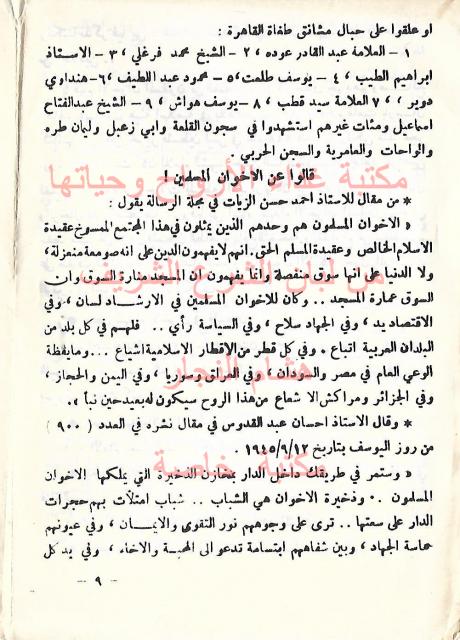 او علقوا على حبال مشانق طغاة القاهرة :
١ – العلامة عبد القادر عوده ، ٢ – الشيخ محمد فرغلي ، ٣ – الاستاذ
ابراهيم الطيب ، ٤ – يوسف طلعت ، ٥ – محمود عبد اللطيف ، ٦ – هنداوي
دوير ، ، ٧ العلامة سيد قطب ، ٨ – يوسف هواش ، ٩ – الشيخ عبدالفتاح
اسماعيل ومئات غيرهم استشهدوا في سجون القلعة وابي زعبل وليمان طره
والواحات والعامرية والسجن الحربي .
مكتبة غذاء الأرواح وحياتها
قالوا عن الاخوان المسلمين !
* من مقال للاستاذ احمد حسن الزيات في مجلة الرسالة يقول :
« الاخوان المسلمون هم وحدهم الذين يمثلون في هذا المجتمع الممسوخ عقيدة
الاسلام الخالص وعقيدة المسلم الحق . انهم لا يفهمون الدين على انه صومعة منعزلة ،
ولا الدنيا على انها سوق منفصلة وانما يفهمون ان المسجد منارة السوق وان
من لبان الشرع الشريف
السوق عمارة المسجد .. وكان للاخوان المسلمين في الارشاد لسان ، وفي
الاقتصاد يد ، وفي الجهاد سلاح ، وفي السياسة رأي .. فلهم في كل بلد من
البلدان العربية اتباع . وفي كل قطر من الاقطار الاسلامية اشياع ... وما يقظة
هشام النجار
الوعي العام في مصر والسودان ، وفي العراق وسوريا ، وفي اليمن والحجاز ،
وفي الجزائر ومراكش الا شعاع من هذا الروح سيكون له بعد حين نبأ » .
* وقال الاستاذ احسان عبد القدوس في مقال نشره في العدد ( ٩٠٠ )
من روز اليوسف بتاريخ ١٩٤٥/٩/١٢ .
مكتبة خاصة
« وستمر في طريقك داخل الدار بمخازن الذخيرة التي يملكها الاخوان
المسلمون .. وذخيرة الاخوان هي الشباب .. شباب امتلأت بهم حجرات
الدار على سعتها .. ترى على وجوههم نور التقوى والايمان ، وفي عيونهم
حماسة الجهاد ، وبين شفاههم ابتسامة تدعو الى المحبة والاخاء ، وفي يد كل
– ٩ –